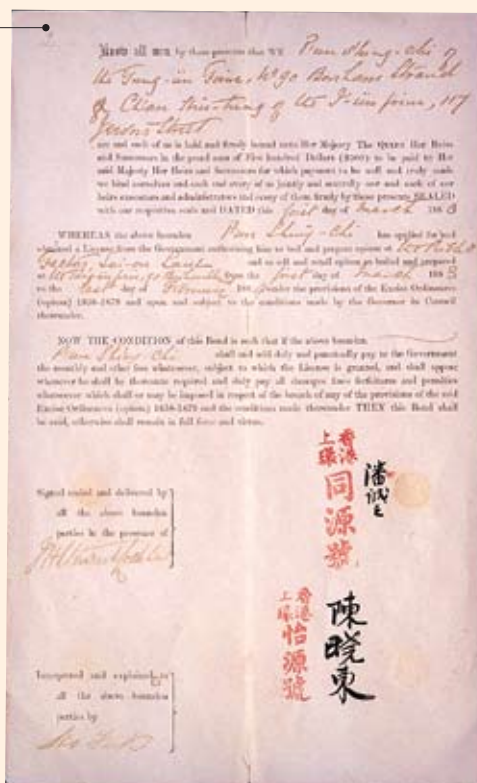 Know all men by these presents that WE Pun Shing-chi of
the Tung-ün Firm, No 90 Bonham Strand
& Chan hiu-tung of the I-ün firm, 117
Jervois Street
are and each of us is held and firmly bound unto Her Majesty The QUEEN Her Heirs
and Successors in the penal sum of Five Hundred Dollars ($500) to be paid by Her
said Majesty Her Heirs and Successors for which payment to be well and truly made
we bind ourselves and each and every of us jointly and severally our and each of our
heirs executors and administrators and every of them firmly by these presents SEALED
with our respective seals and DATED this first day of March 188 3
WHEREAS the above bounden Pun Shing-chi has applied for and
obtained a License from the Government authorising him to boil and prepare opium at
Factory Sai-on Lane and to sell and retail opium so boiled and prepared
at the first day of March 188 3
to the last day of February 188 under the provisions of the Excise Ordinances
(opium) 1858-1879 and upon and subject to the conditions made by the Governor in Council
thereunder.
NOW THE CONDITION of this Bond is such that if the above bounden
Pun Shing Chi shall and will duly and punctually pay to the Government
the monthly and other fees whatsoever, subject to which the License is granted, and shall appear
whenever he shall by thereunto required and duly pay all damages fines forfeitures and penalties
whatsoever which shall or may be imposed in respect of the breach of any of the provisions of the said
Excise Ordinances (opium) 1858-1879 and the conditions made thereunder THEN this Bond shall
be void, otherwise shall remain in full force and virtue.
Signed sealed and delivered by
all the above bounden
parties in the presence of
香港
上環
同源號
潘誠之
Interpreted and explained to
all the above bounden
parties by
香港
上環
怡源號
陳曉東